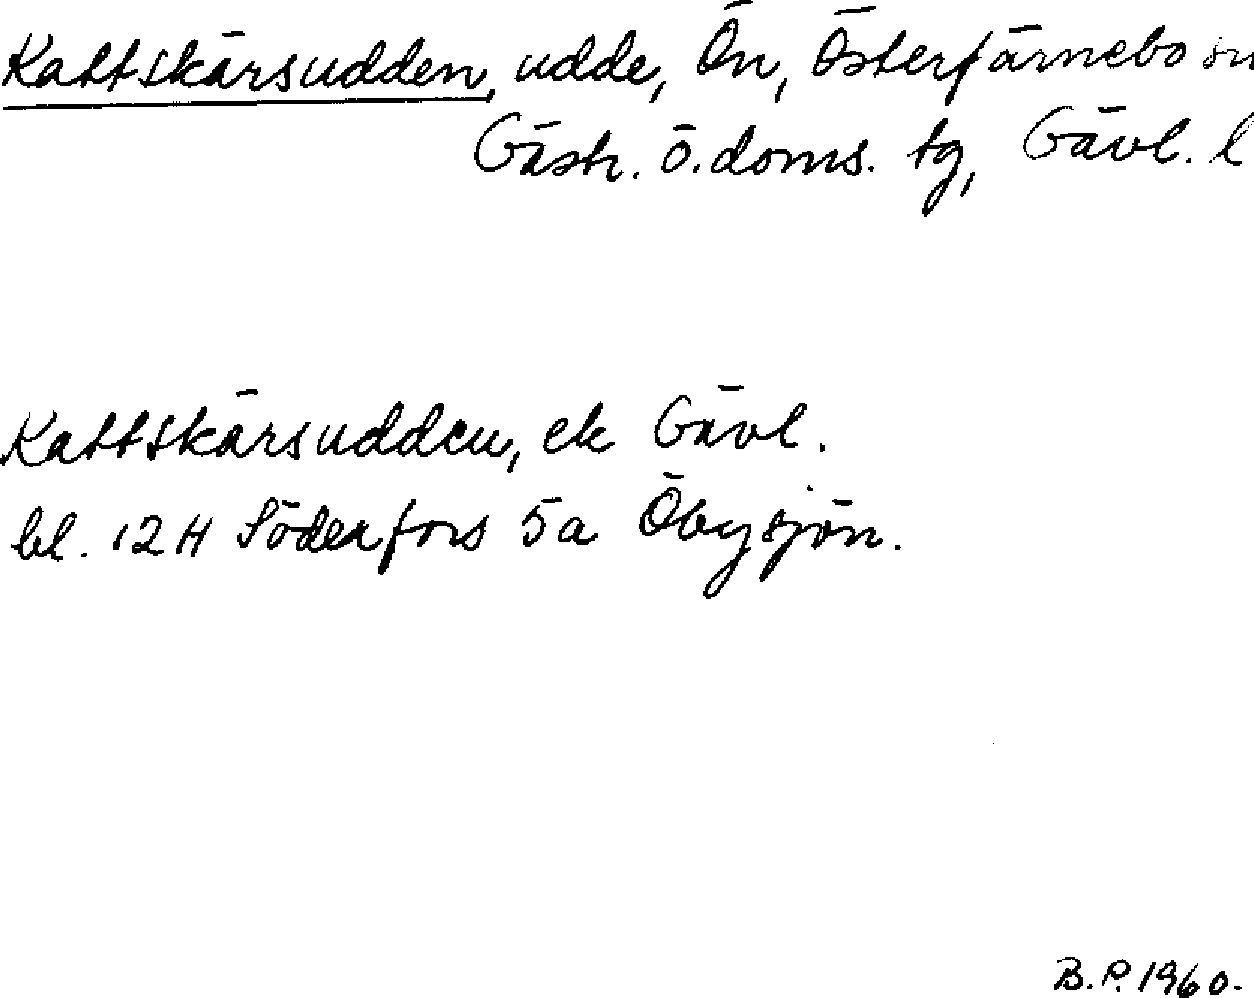 Kattskärsudden, udde, Ön, Österfärnebo sn
Gästr. ö. doms. tg, Gävl. l
Kattskärsudden, ek Gävl.
bl. 12H Söderfors 5a Öbysjön.
B.P. 1960.